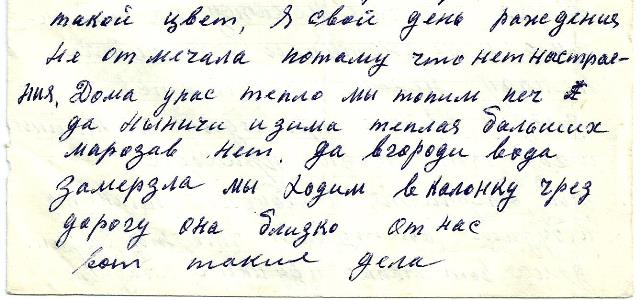 такой цвет, Я свой день раждения
не отмечала потаму что нет настрае-
ния. Дома унас тепло мы топим печ
да ныничи и зима теплая балших
марозав нет. да вгороди вода
замерзла мы ходим в калонку чрез
дарогу она близко от нас
вот такие дела